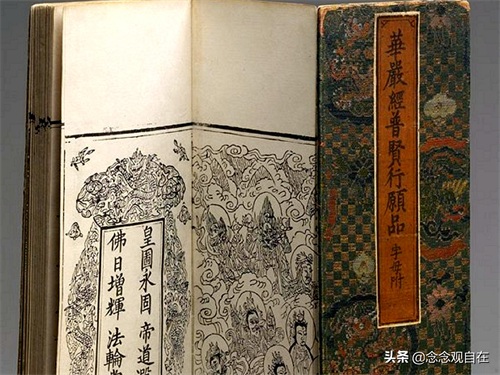 華嚴經普賢行願品 字母附
皇圖永固 帝道
佛日增輝 法輪
头条 @念念观自在